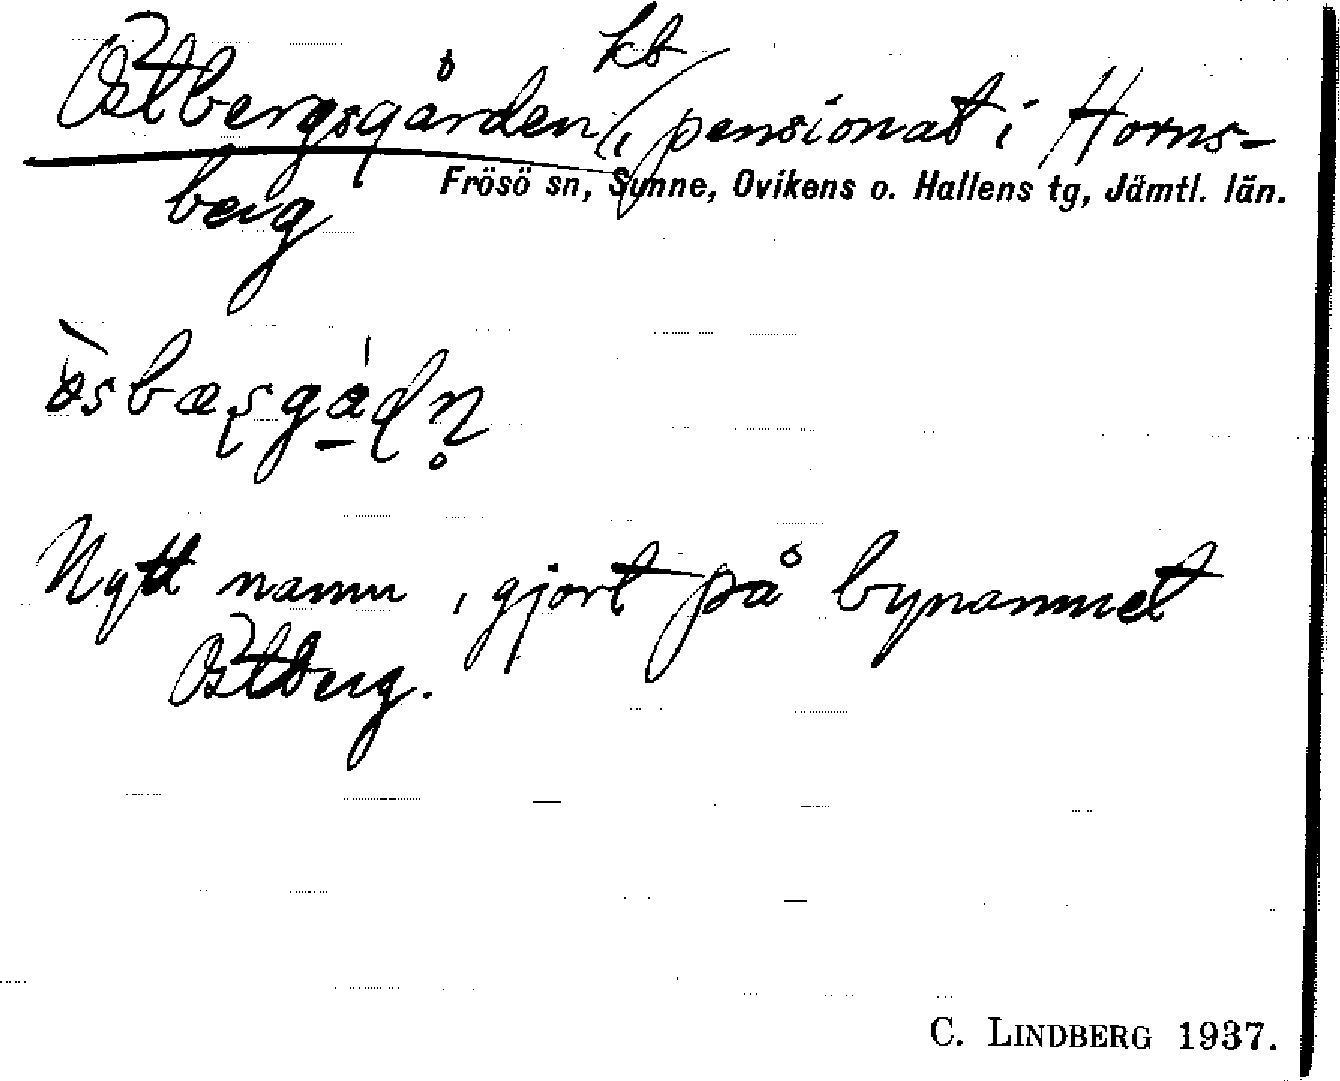 Östbergsgården, kb pensionat i Horns-
berg
Frösö sn, Sunne, Ovikens o. Hallens tg, Jämtl. län.
Nytt namn, gjort på bynamnet
Östberg.
C. LINDBERG 1937.